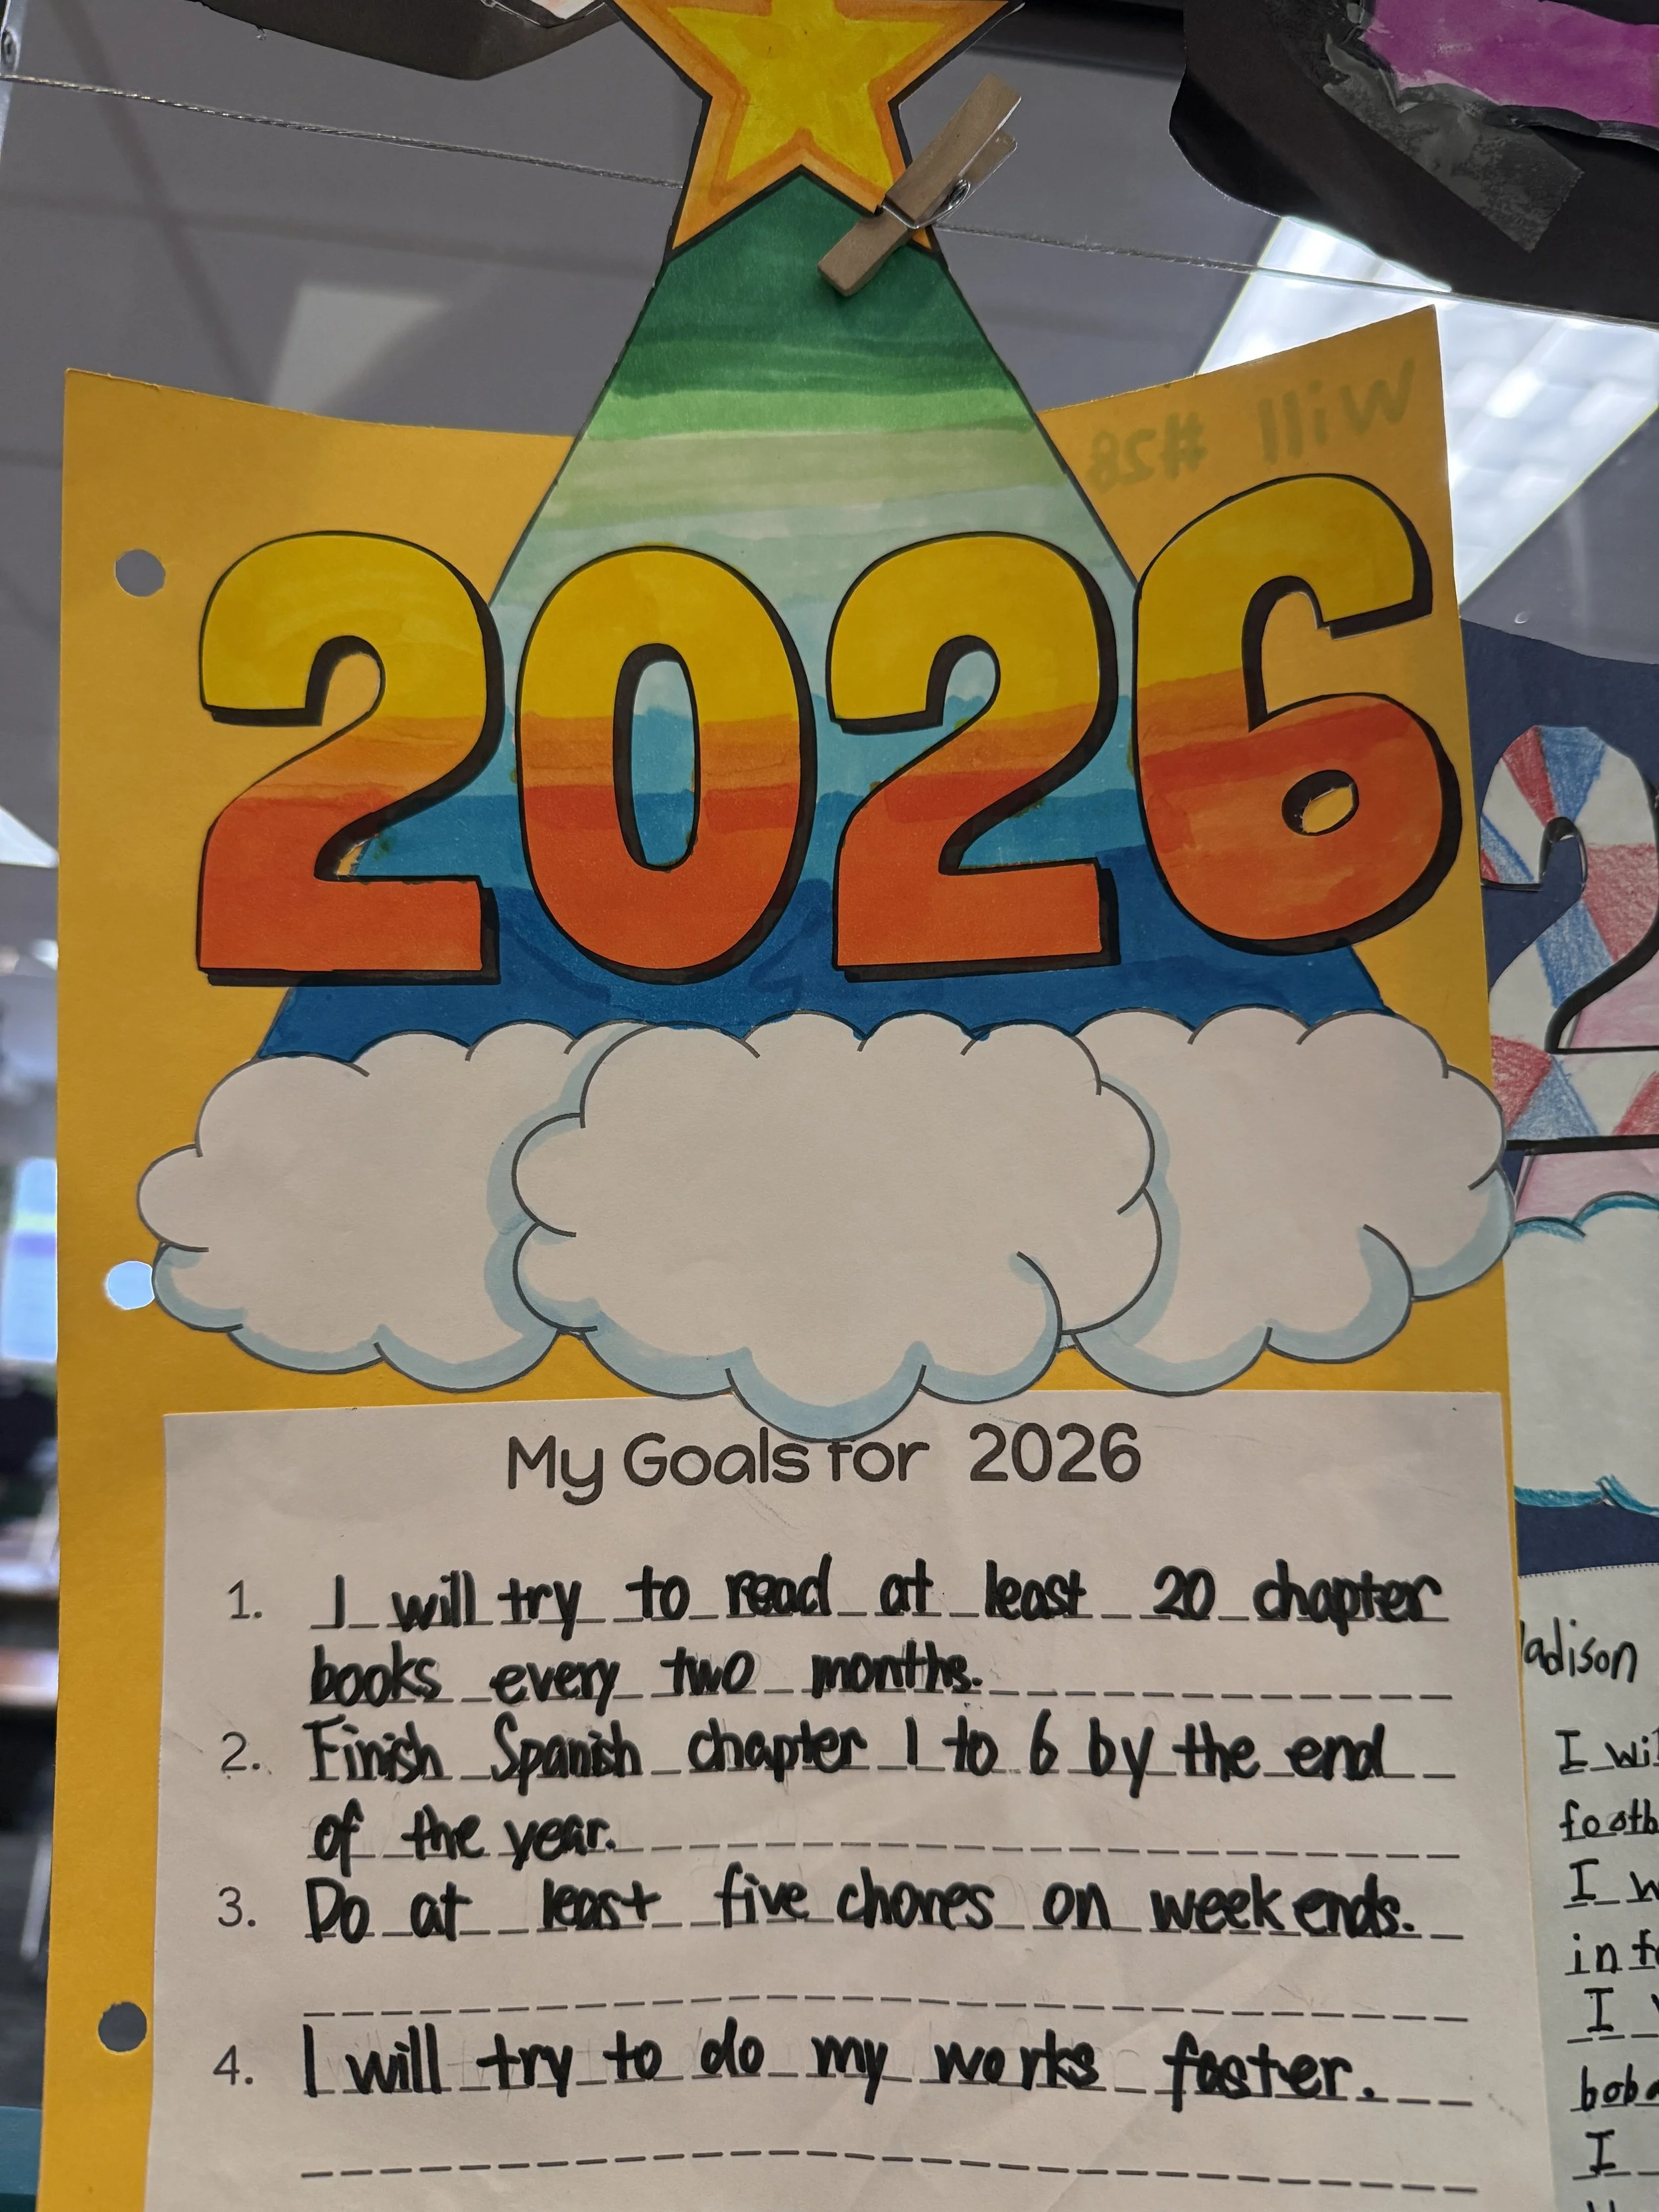 Will #28
2026
My Goals for 2026
1. I will try to read at least 20 chapter
books every two months.
2. Finish Spanish chapter 1 to 6 by the end
of the year.
3. Do at least five chores on weekends.
4. I will try to do my works faster.
2
adison
I wi
footb
I w
in f
I
bob
I